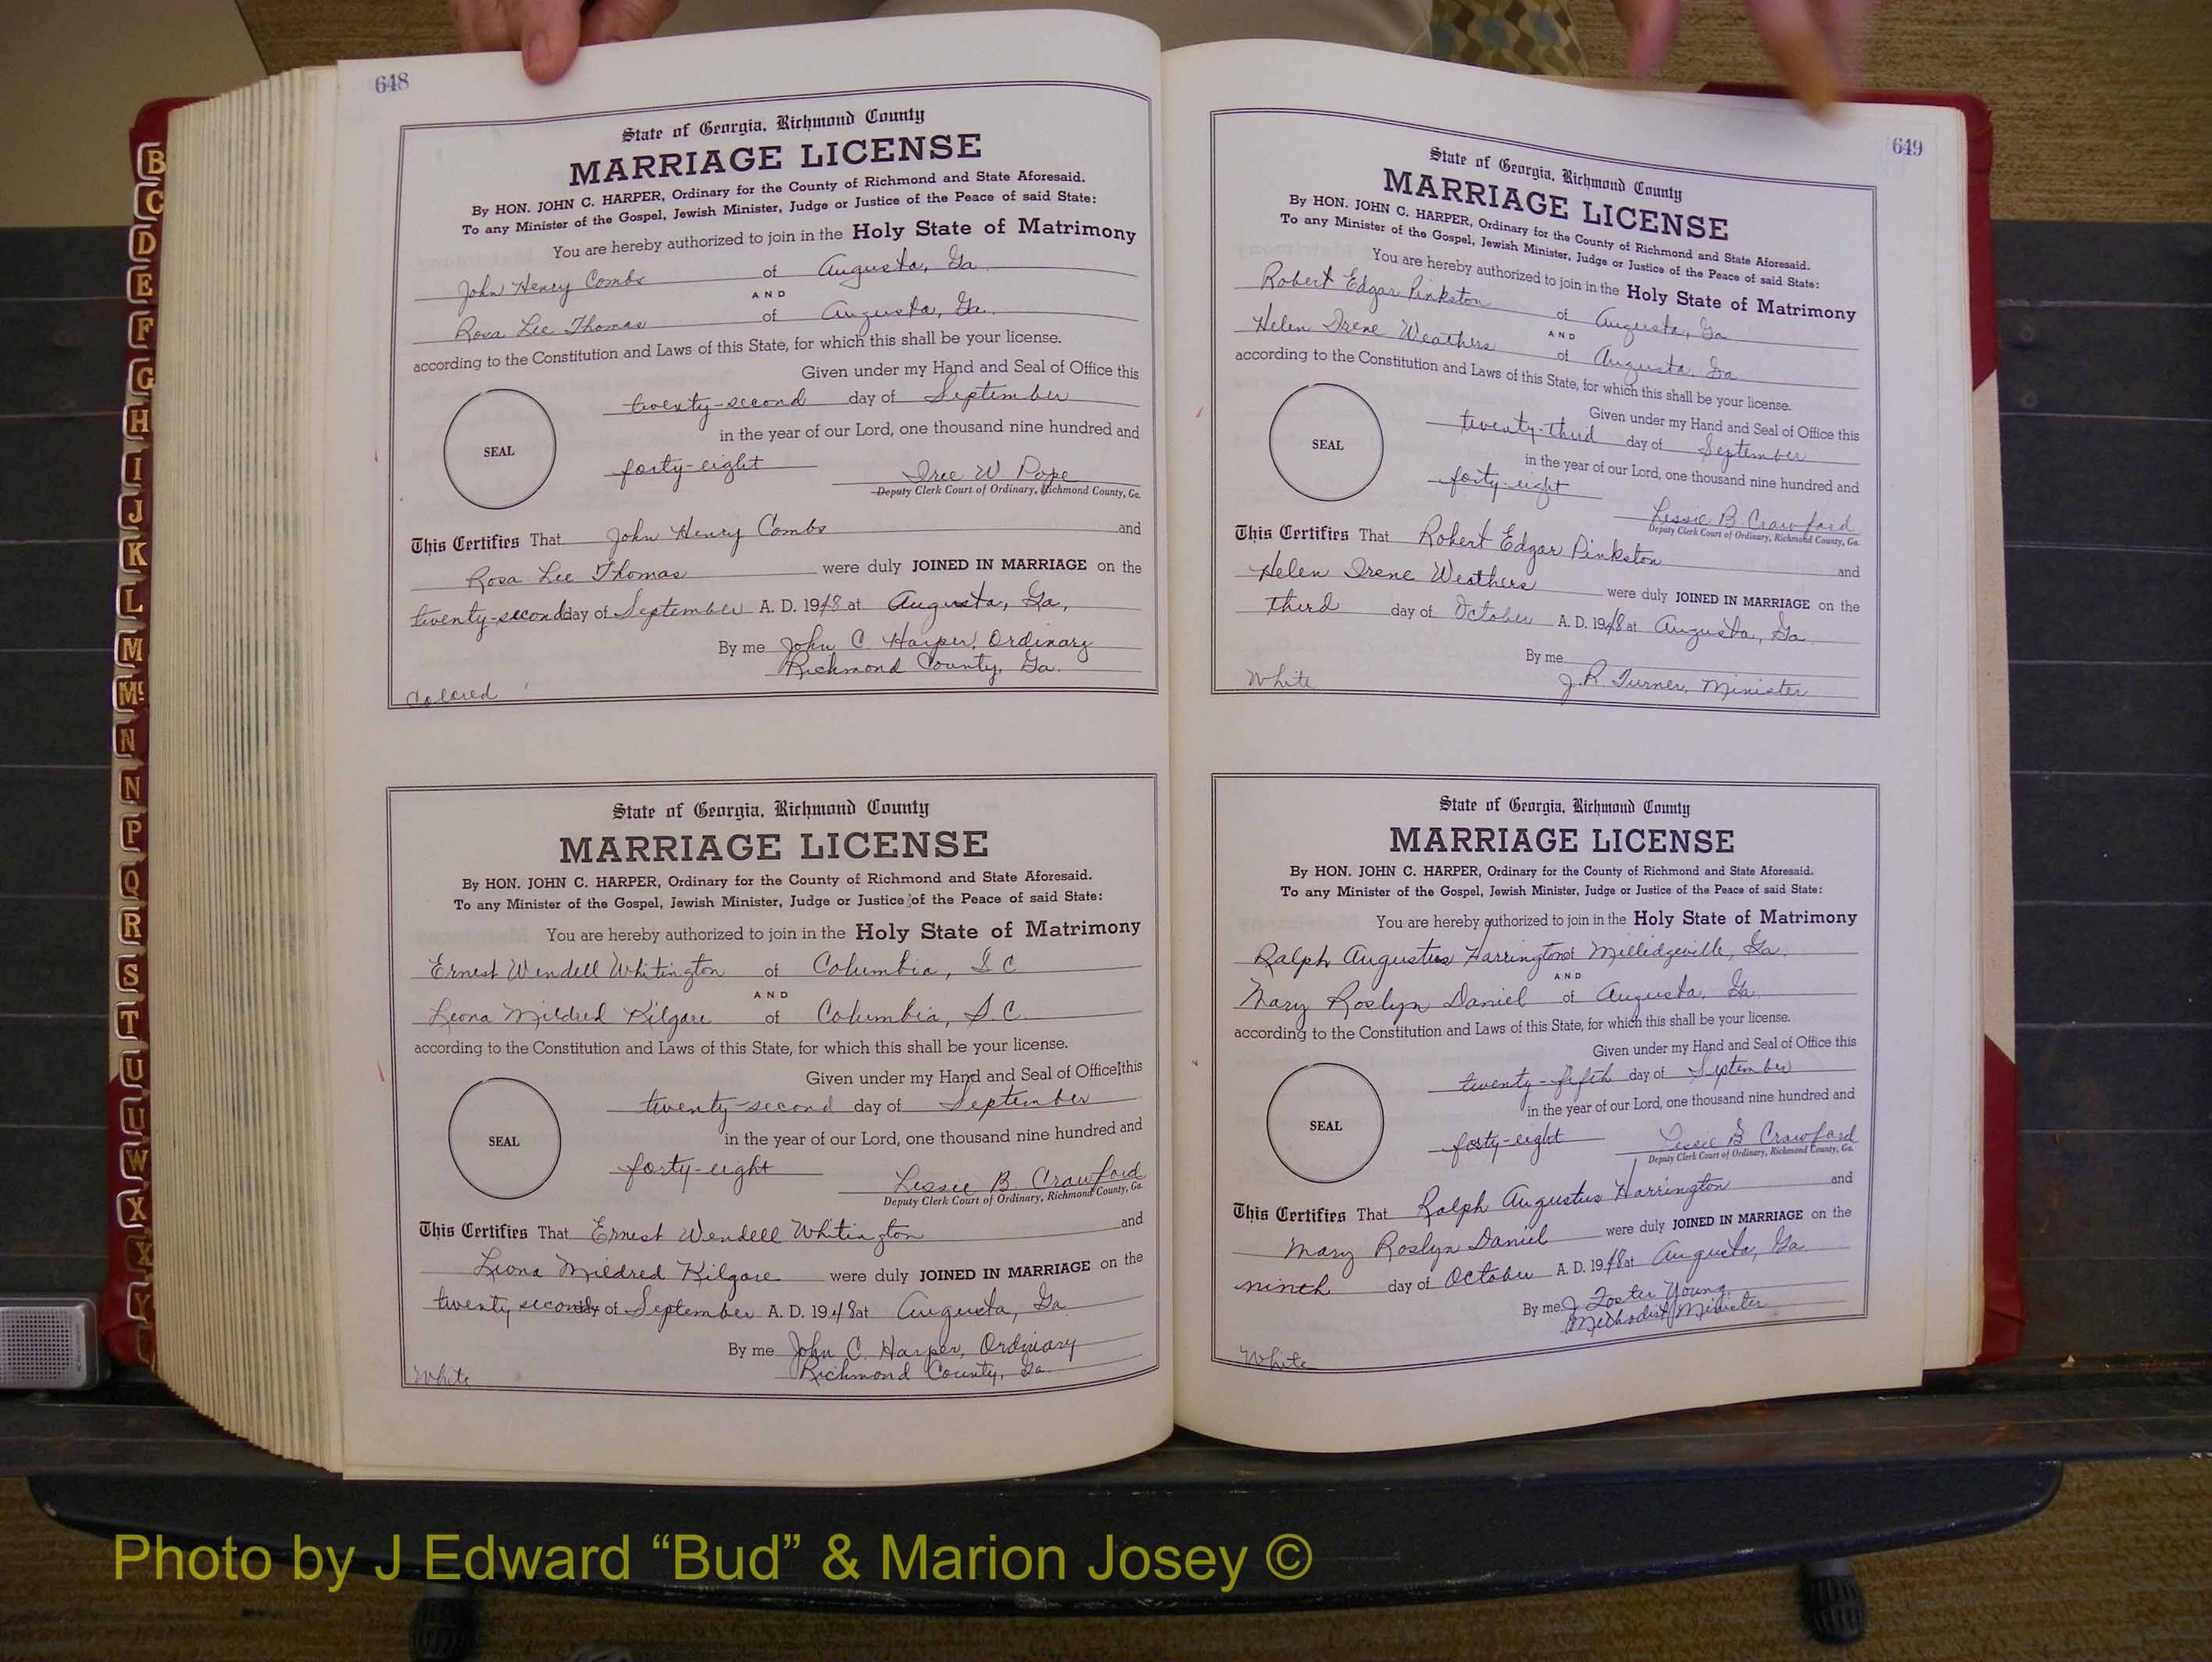 648
State of Georgia, Richmond County
MARRIAGE LICENSE
By HON. JOHN C. HARPER, Ordinary for the County of Richmond and State Aforesaid.
To any Minister of the Gospel, Jewish Minister, Judge or Justice of the Peace of said State:
You are hereby authorized to join in the Holy State of Matrimony
John Henry Combs of Augusta, Ga.
AND
Rosa Lee Thomas of Augusta, Ga.
according to the Constitution and Laws of this State, for which this shall be your license.
Given under my Hand and Seal of Office this
twenty-second day of September
in the year of our Lord, one thousand nine hundred and
SEAL
forty-eight W. Pope
Deputy Clerk Court of Ordinary, Richmond County, Ga.
This Certifies That John Henry Combs and
Rosa Lee Thomas were duly JOINED IN MARRIAGE on the
twenty-second day of September A. D. 1948 at Augusta, Ga.,
By me John C. Harper, Ordinary
Richmond County, Ga.
Colored
State of Georgia, Richmond County
MARRIAGE LICENSE
By HON. JOHN C. HARPER, Ordinary for the County of Richmond and State Aforesaid.
To any Minister of the Gospel, Jewish Minister, Judge or Justice of the Peace of said State:
You are hereby authorized to join in the Holy State of Matrimony
Ernest Wendell Whitington of Columbia, S C
AND
Leona Mildred Kilgore of Columbia, S.C.
according to the Constitution and Laws of this State, for which this shall be your license.
Given under my Hand and Seal of Office this
twenty-second day of September
in the year of our Lord, one thousand nine hundred and
SEAL
forty-eight Lessie B. Crawford
Deputy Clerk Court of Ordinary, Richmond County, Ga.
This Certifies That Ernest Wendell Whitington and
Leona Mildred Kilgore were duly JOINED IN MARRIAGE on the
twenty second day of September A. D. 1948 at Augusta, Ga
By me John C. Harper, Ordinary
Richmond County, Ga.
White
649
State of Georgia, Richmond County
MARRIAGE LICENSE
By HON. JOHN C. HARPER, Ordinary for the County of Richmond and State Aforesaid.
To any Minister of the Gospel, Jewish Minister, Judge or Justice of the Peace of said State:
You are hereby authorized to join in the Holy State of Matrimony
Robert Edgar Pinkston of Augusta, Ga
AND
Helen Irene Weathers of Augusta, Ga
according to the Constitution and Laws of this State, for which this shall be your license.
Given under my Hand and Seal of Office this
twenty-third day of September
in the year of our Lord, one thousand nine hundred and
SEAL
forty-eight
Lessie B Crawford
Deputy Clerk Court of Ordinary, Richmond County, Ga.
This Certifies That Robert Edgar Pinkston and
Helen Irene Weathers were duly JOINED IN MARRIAGE on the
third day of October A. D. 1948 at Augusta, Ga.
By me
J.R. Turner, Minister
White
State of Georgia, Richmond County
MARRIAGE LICENSE
By HON. JOHN C. HARPER, Ordinary for the County of Richmond and State Aforesaid.
To any Minister of the Gospel, Jewish Minister, Judge or Justice of the Peace of said State:
You are hereby authorized to join in the Holy State of Matrimony
Ralph Augustus Harrington of Milledgeville, Ga.
AND
Mary Roslyn Daniel of Augusta, Ga
according to the Constitution and Laws of this State, for which this shall be your license.
Given under my Hand and Seal of Office this
twenty-fifth day of September
in the year of our Lord, one thousand nine hundred and
SEAL
forty-eight Lessie B Crawford
Deputy Clerk Court of Ordinary, Richmond County, Ga.
This Certifies That Ralph Augustus Harrington and
Mary Roslyn Daniel were duly JOINED IN MARRIAGE on the
ninth day of October A. D. 1948 at Augusta, Ga.
By me J Foster Young
Methodist Minister
White
B
C
D
E
F
G
H
I
J
K
L
M
Mc
N
N
P
Q
R
S
T
U
U
W
X
X
Y
Photo by J Edward “Bud” & Marion Josey ©